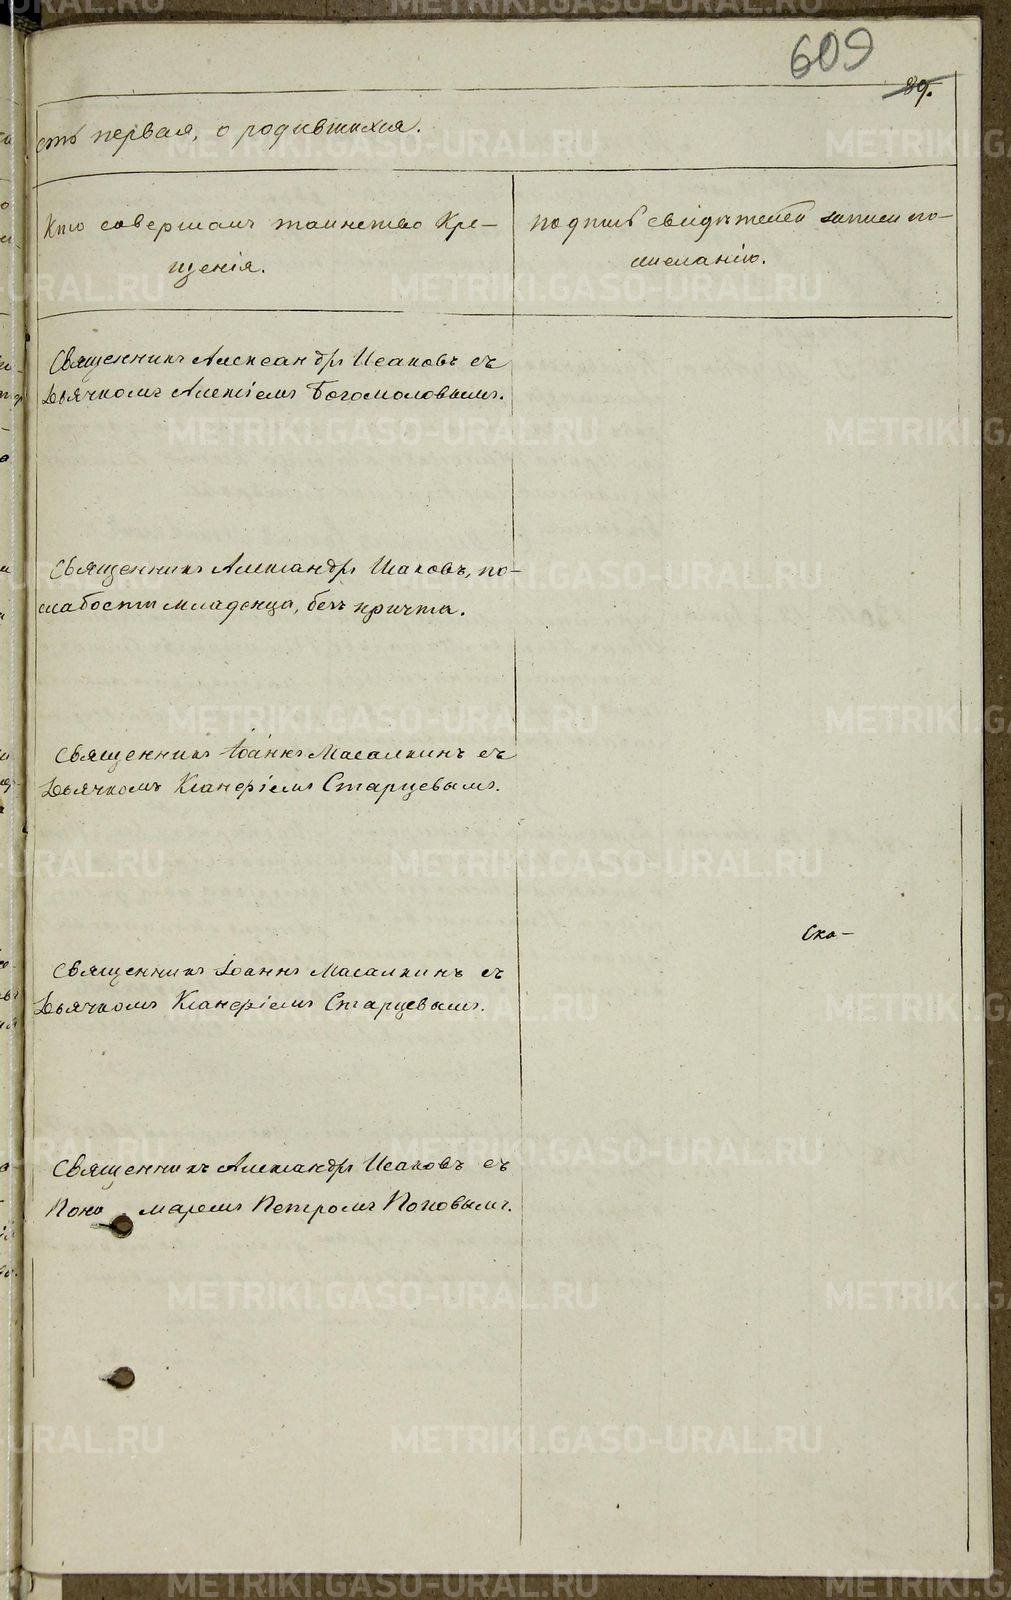 609
89.
сть первая, о родившихся.
Кто совершалъ таинство Кре-
щенія.
подпись свидѣтелей записи по
желанію.
Священникъ Александръ Исаковъ съ
Дьячкомъ Алексіемъ Богомоловымъ.
Священникъ Александръ Исаковъ, по
слабости младенца, безъ причта.
Священникъ Іоаннъ Масалкинъ съ
Дьячкомъ Ксанфіемъ Старцевымъ.
Ска-
Священникъ Іоаннъ Масалкинъ съ
Дьячкомъ Ксанфіемъ Старцевымъ.
Священникъ Александръ Исаковъ съ
Поно маремъ Петромъ Поповымъ.
METRIKI.GASO-URAL.RU